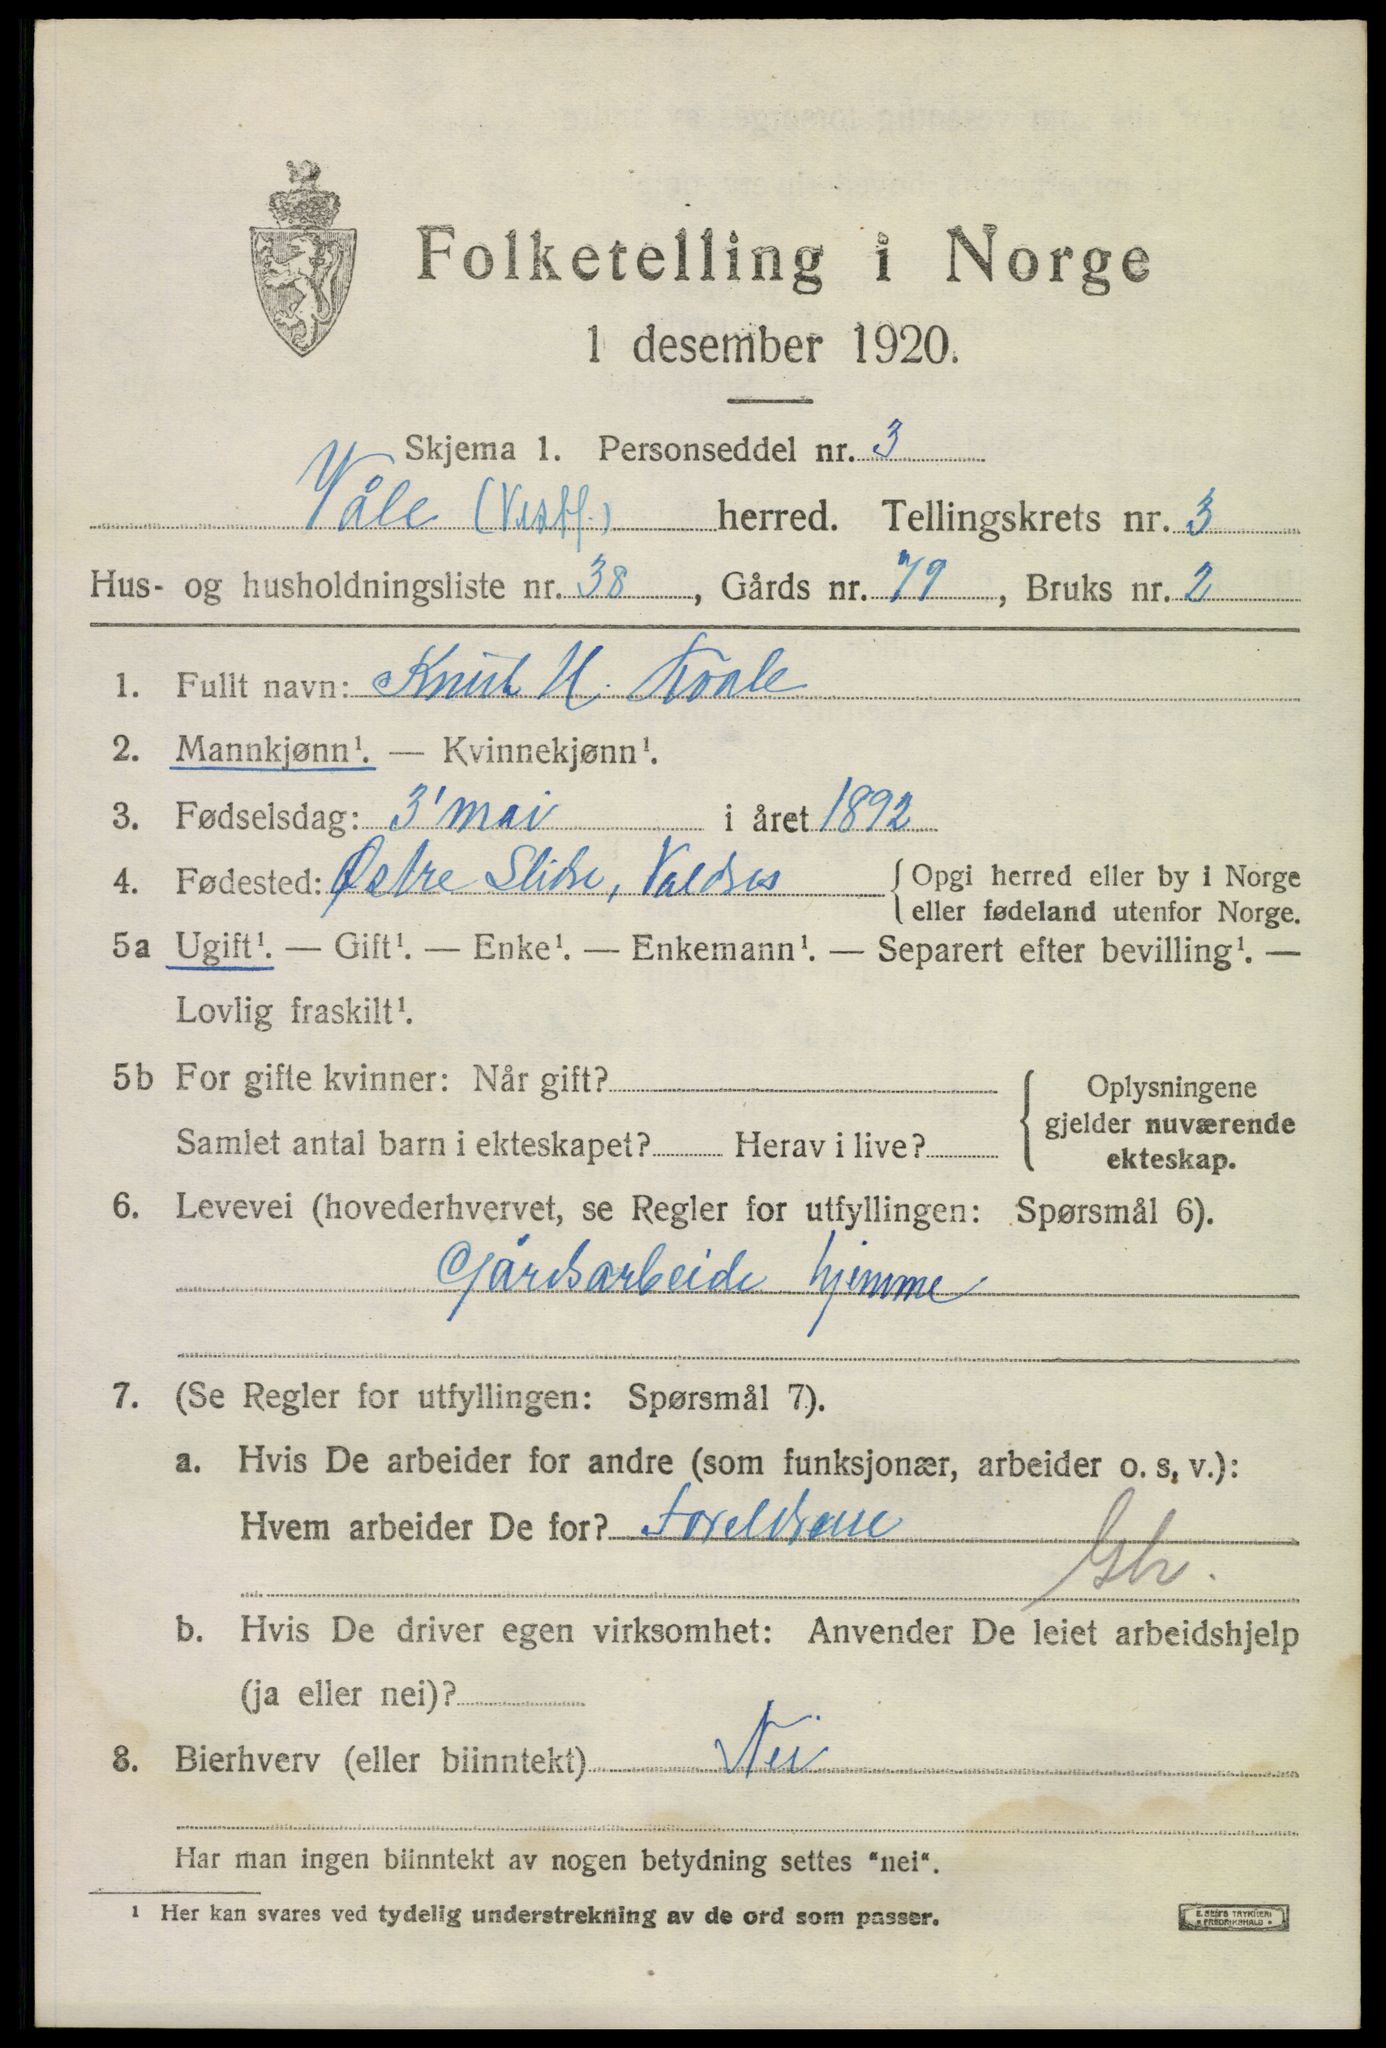 Folketelling i Norge
1 desember 1920.
Skjema 1. Personseddel nr. 3
Våle (Vestf.) herred. Tellingskrets nr. 3
Hus- og husholdningsliste nr. 38, Gårds nr. 79, Bruks nr. 2
1. Fullt navn: Knut H.
2. Mannkjønn¹. — Kvinnekjønn¹.
3. Fødselsdag: 3' mai i året 1892
4. Fødested: Østre Slidre, Valdres { Opgi herred eller by i Norge
eller fødeland utenfor Norge.
5a Ugift¹. — Gift¹. — Enke¹. — Enkemann¹. — Separert efter bevilling¹. —
Lovlig fraskilt¹.
5b For gifte kvinner: Når gift?
Samlet antal barn i ekteskapet? Herav i live?
{ Oplysningene
gjelder nuværende
ekteskap.
6. Levevei (hovederhvervet, se Regler for utfyllingen: Spørsmål 6).
Gårdsarbeide hjemme
7. (Se Regler for utfyllingen: Spørsmål 7).
a. Hvis De arbeider for andre (som funksjonær, arbeider o. s. v.):
Hvem arbeider De for? Foreldrene
b. Hvis De driver egen virksomhet: Anvender De leiet arbeidshjelp
(ja eller nei)?
8. Bierhverv (eller biinntekt) Nei
Har man ingen biinntekt av nogen betydning settes "nei".
¹ Her kan svares ved tydelig understrekning av de ord som passer.
E. SEMS TRYKKERI
FREDRIKSHALD